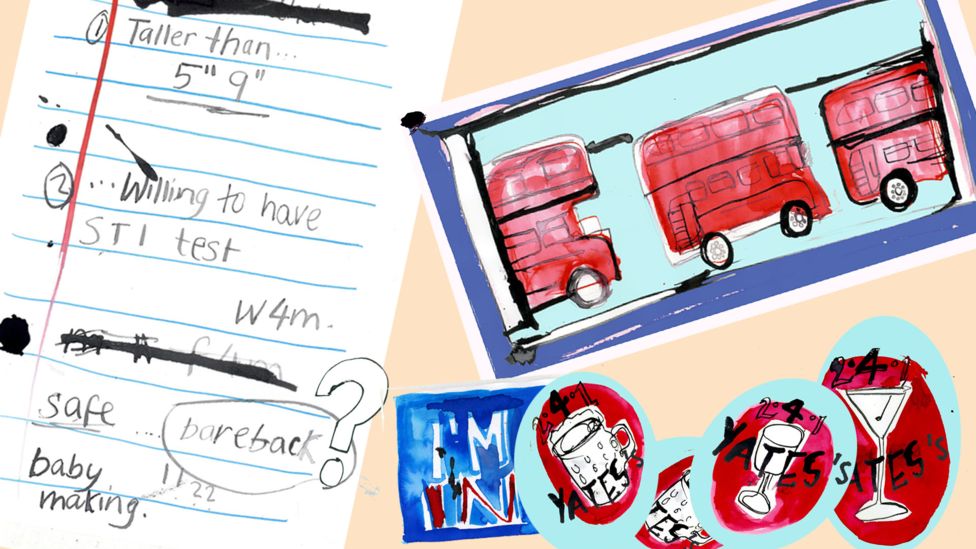 ① Taller than...
5"9"
② ...Willing to have
STI test
W4m.
safe ... bareback ?
baby 11 22
making.
I'M
IN
2.4.1
YATES's
2.4.1
YATES's
2.4.1
YATES's